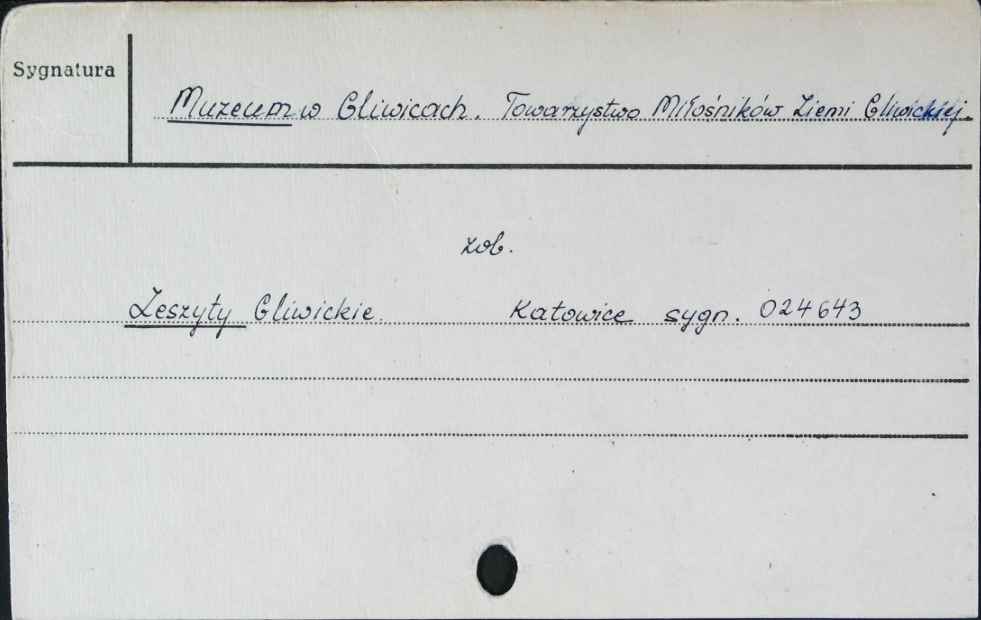 Sygnatura
Muzeum w Gliwicach. Towarzystwo Miłośników Ziemi Gliwickiej.
zob.
Zeszyty Gliwickie. Katowice sygn. 024643